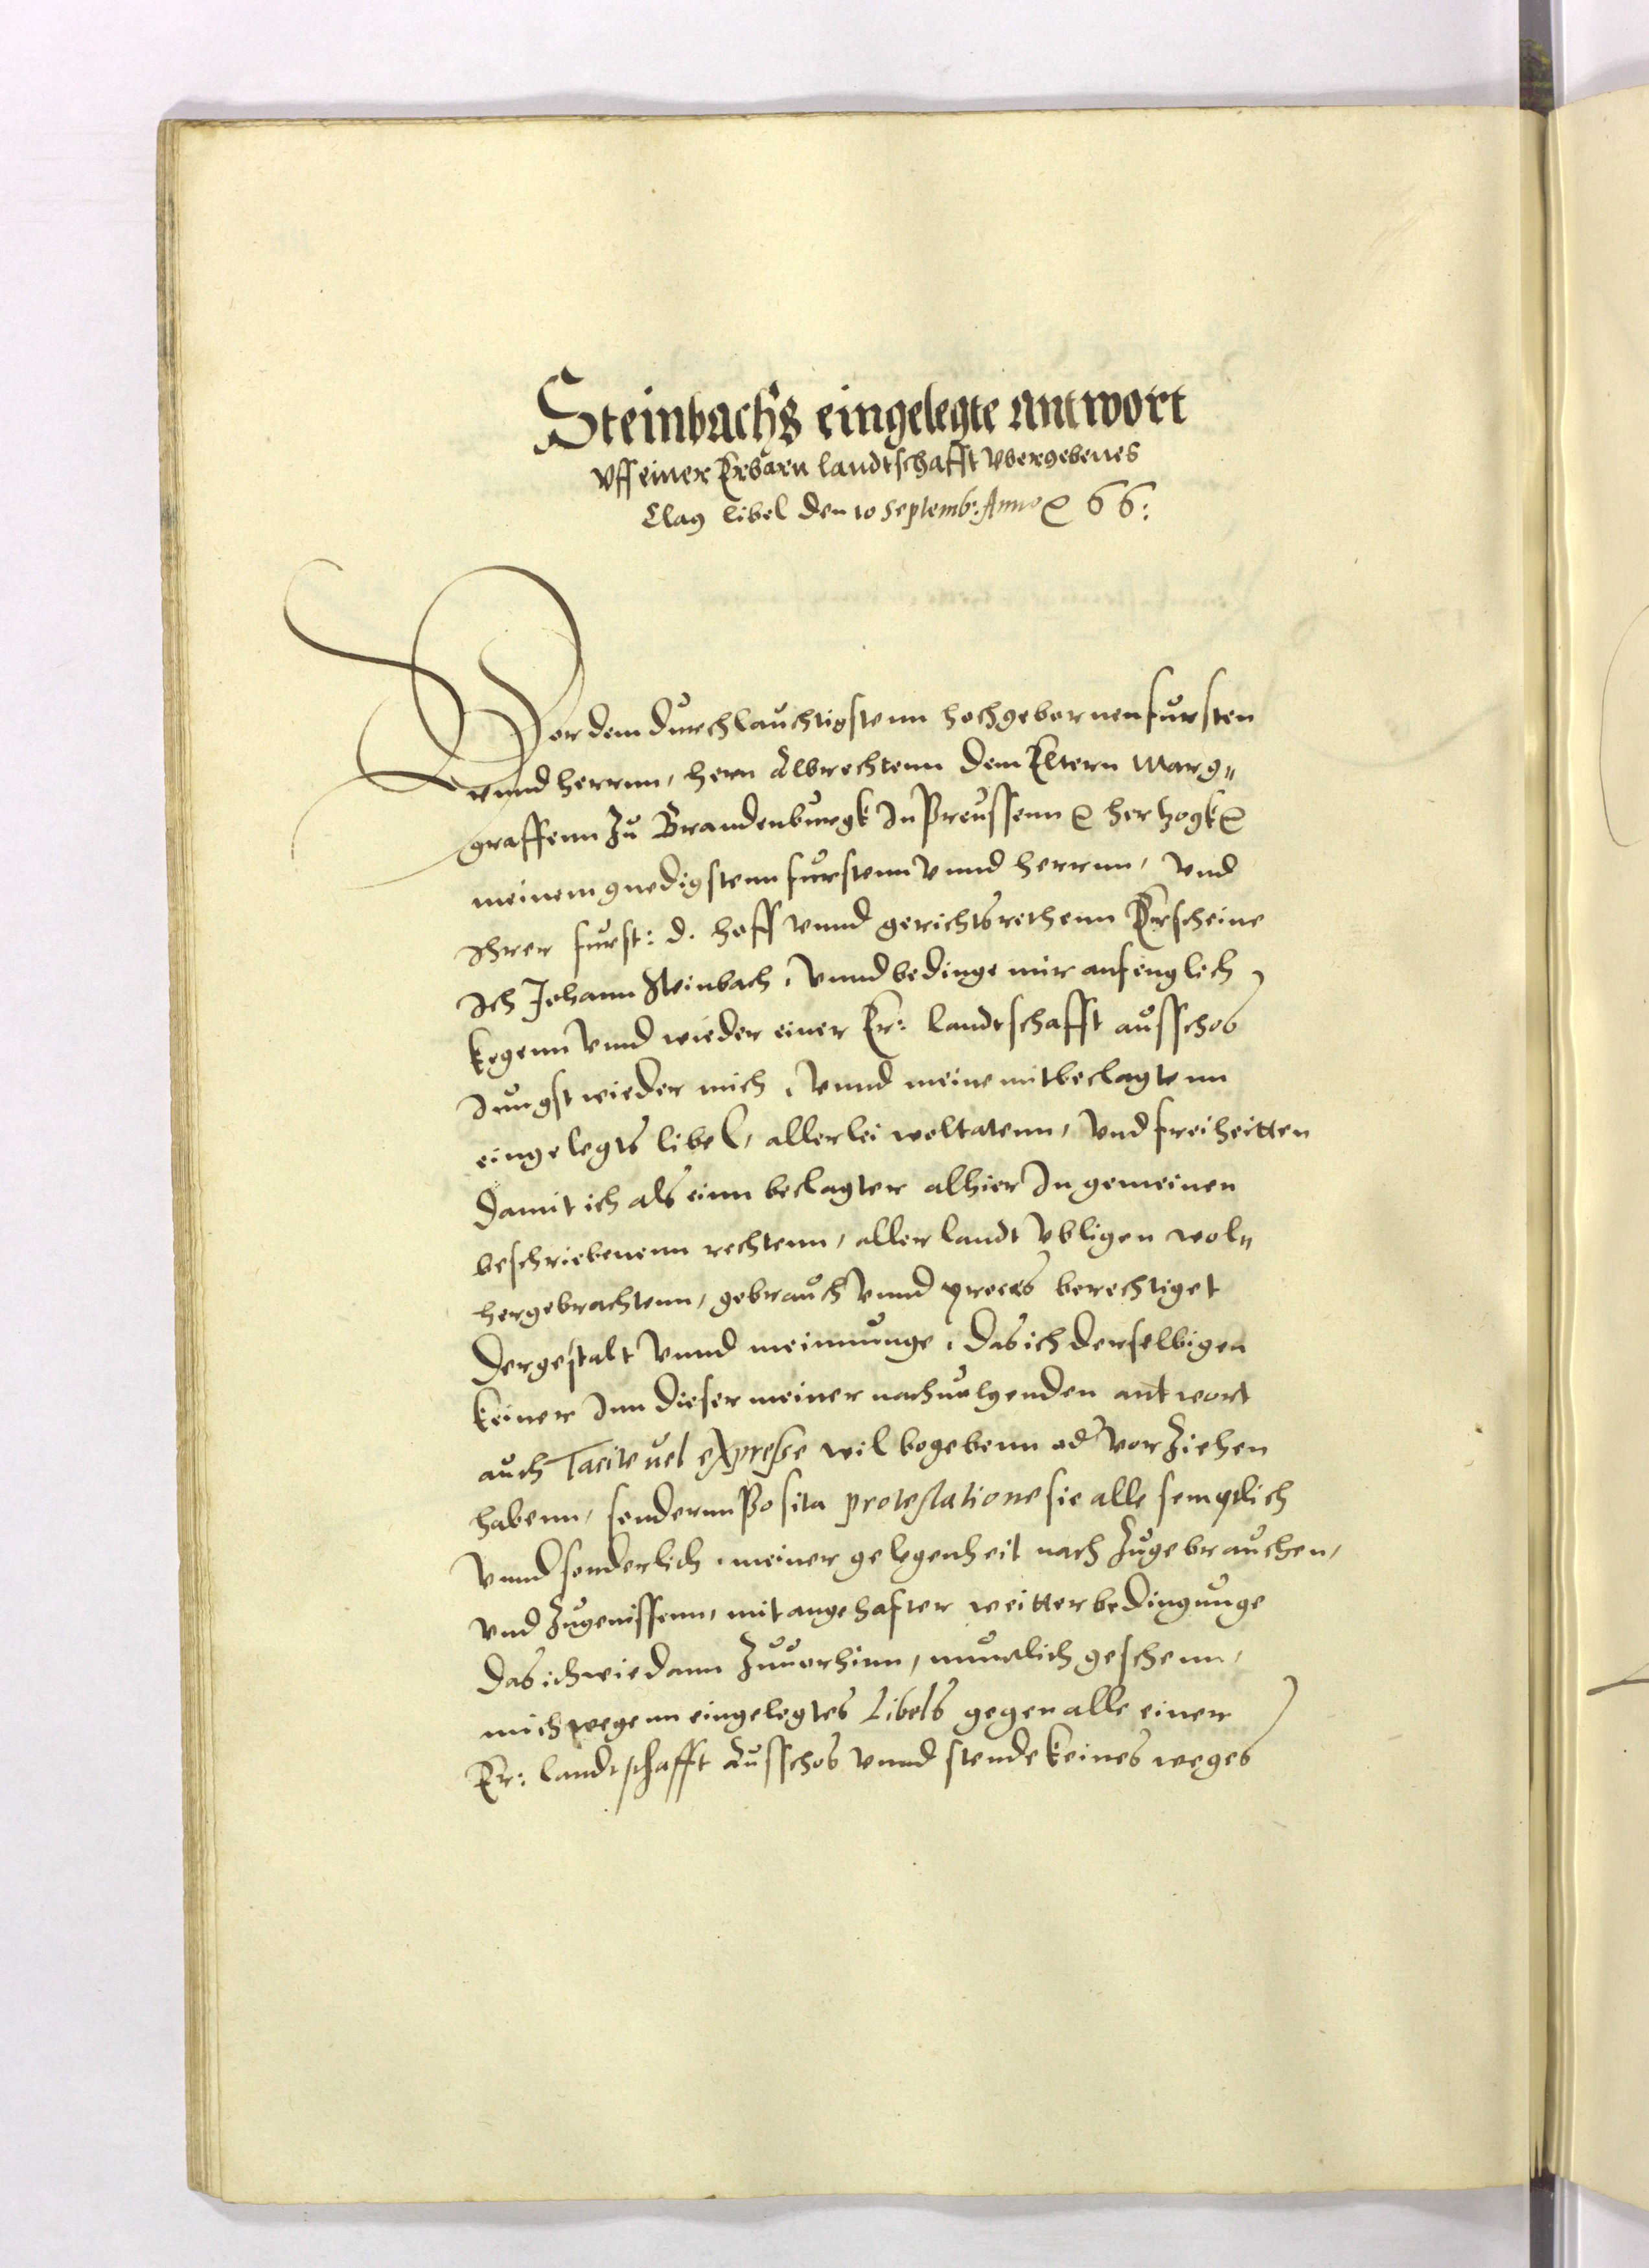 Steinbachs eingelegte antwort
vff einer Erbarn landtschafft vbergebenes
Clag libel den 10 Septemb: Anno ꝛc 66:
Vor dem durchlauchtigstenn hochgebornen fursten
vnnd herrnn, hern Albrechtenn dem Eltern Marg„
graffenn zu Brandenburgk In Preussenn ꝛc hertzogk ꝛc
meinem gnedigstenn furstenn vnnd herrnn, vnd
Ihrer furst: d. hoff vnnd gerichtsrethenn Erscheine
Ich Johann Steinbach, vnnd bedinge mir anfenglich
kegenn vnnd wieder einer Er: landtschafft ausschos
Jungst wieder mich, vnnd meine mitbeclagtenn
eingelegts libel, allerlei woltatenn, vnd freiheitten
damit ich als einn beclagter alhier In gemeinen
beschriebenenn rechtenn, aller landt vbligen wol„
hergebrachtenn, gebrauch vnnd proces berechtiget
dergestalt vnnd meinnunge, das ich derselbigen
keiner Inn dieser meiner nachuolgenden antwort
auch Tacite uel expresse wil begebenn od vorziehen
habenn, sondernn Posita protestatione sie alle semptlich
vnnd sonderlich, meiner gelegenheit nach zugebrauchen,
vnd zugenissenn, mit angehafter weitter bedingunge
das ich wie dann zuuorhinn, muntlich geschenn,
mich wegenn eingelegtes Libels gegen alle einer
Er: landtschafft Ausschos vnnd stende keines weges